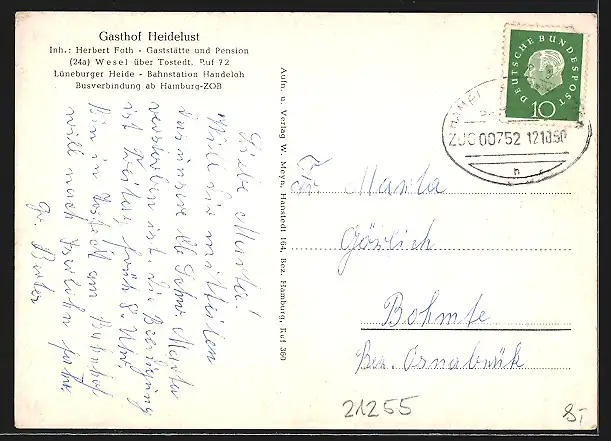 Gasthof Heidelust
Inh.: Herbert Foth - Gaststätte und Pension
(24a) Wesel über Tostedt, Ruf 72
Lüneburger Heide - Bahnstation Handeloh
Busverbindung ab Hamburg-ZOB
Liebe Marta!
Will dir mitteilen
das unsere Schw. Martha
verstorben ist die Beerdigung
ist Freitag, früh 8. Uhr,
Bin in am Bahnhof
will nach fahre
Gr.
Aufn. u. Verlag W. Meyn, Hanstedt 164, Bez. Hamburg, Ruf 360
DEUTSCHE BUNDESPOST
10
ZUG 00752 12.10.60
h
Fr Marta
Görlich
Bohmte
Bez. Osnabrück
21255